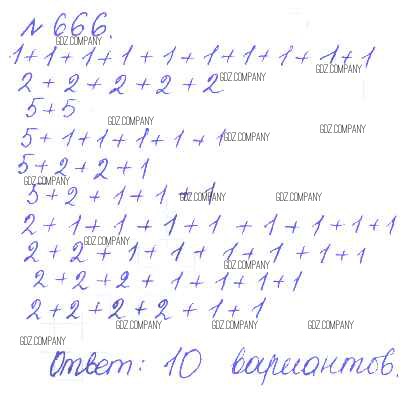 №666.
GDZ.COMPANY
1+1+1+1+1+1+1+1+1+1
GDZ.COMPANY
2+2+2+2+2
GDZ.COMPANY
5+5
GDZ.COMPANY
GDZ.COMPANY
5+1+1+1+1+1
GDZ.COMPANY
5+2+2+1
GDZ.COMPANY
5+2+1+1+1
GDZ.COMPANY GDZ.COMPANY
2+1+1+1+1+1+1+1+1
GDZ.COMPANY
2+2+1+1+1+1+1+1
GDZ.COMPANY
2+2+2+1+1+1+1
2+2+2+2+1+1
GDZ.COMPANY GDZ.COMPANY GDZ.COMPANY
GDZ.COMPANY
Ответ: 10 вариантов.
GDZ.COMPANY